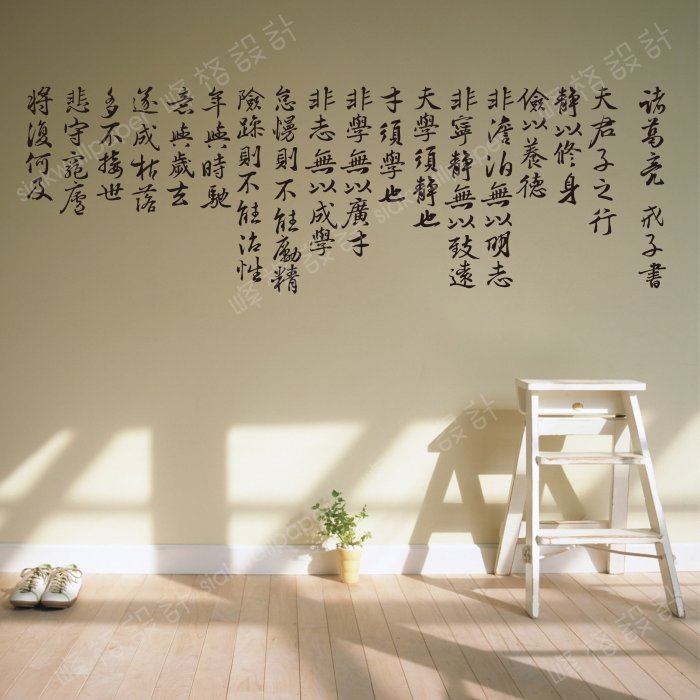 諸葛亮 戒子書
夫君子之行
靜以修身
儉以養德
非澹泊無以明志
非寧靜無以致遠
夫學須靜也
才須學也
非學無以廣才
非志無以成學
怠慢則不能勵精
險躁則不能治性
年與時馳
意與歲去
遂成枯落
多不接世
悲守窮廬
將復何及
峰格設計